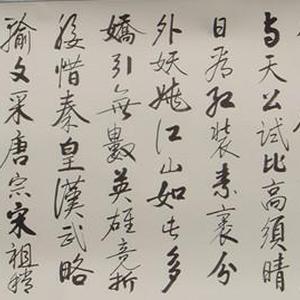 与天公试比高須晴
日看红裝素裹分
外妖娆江山如此多
嬌引無數英雄竞折
腰惜秦皇漢武略
输文采唐宗宋祖稍